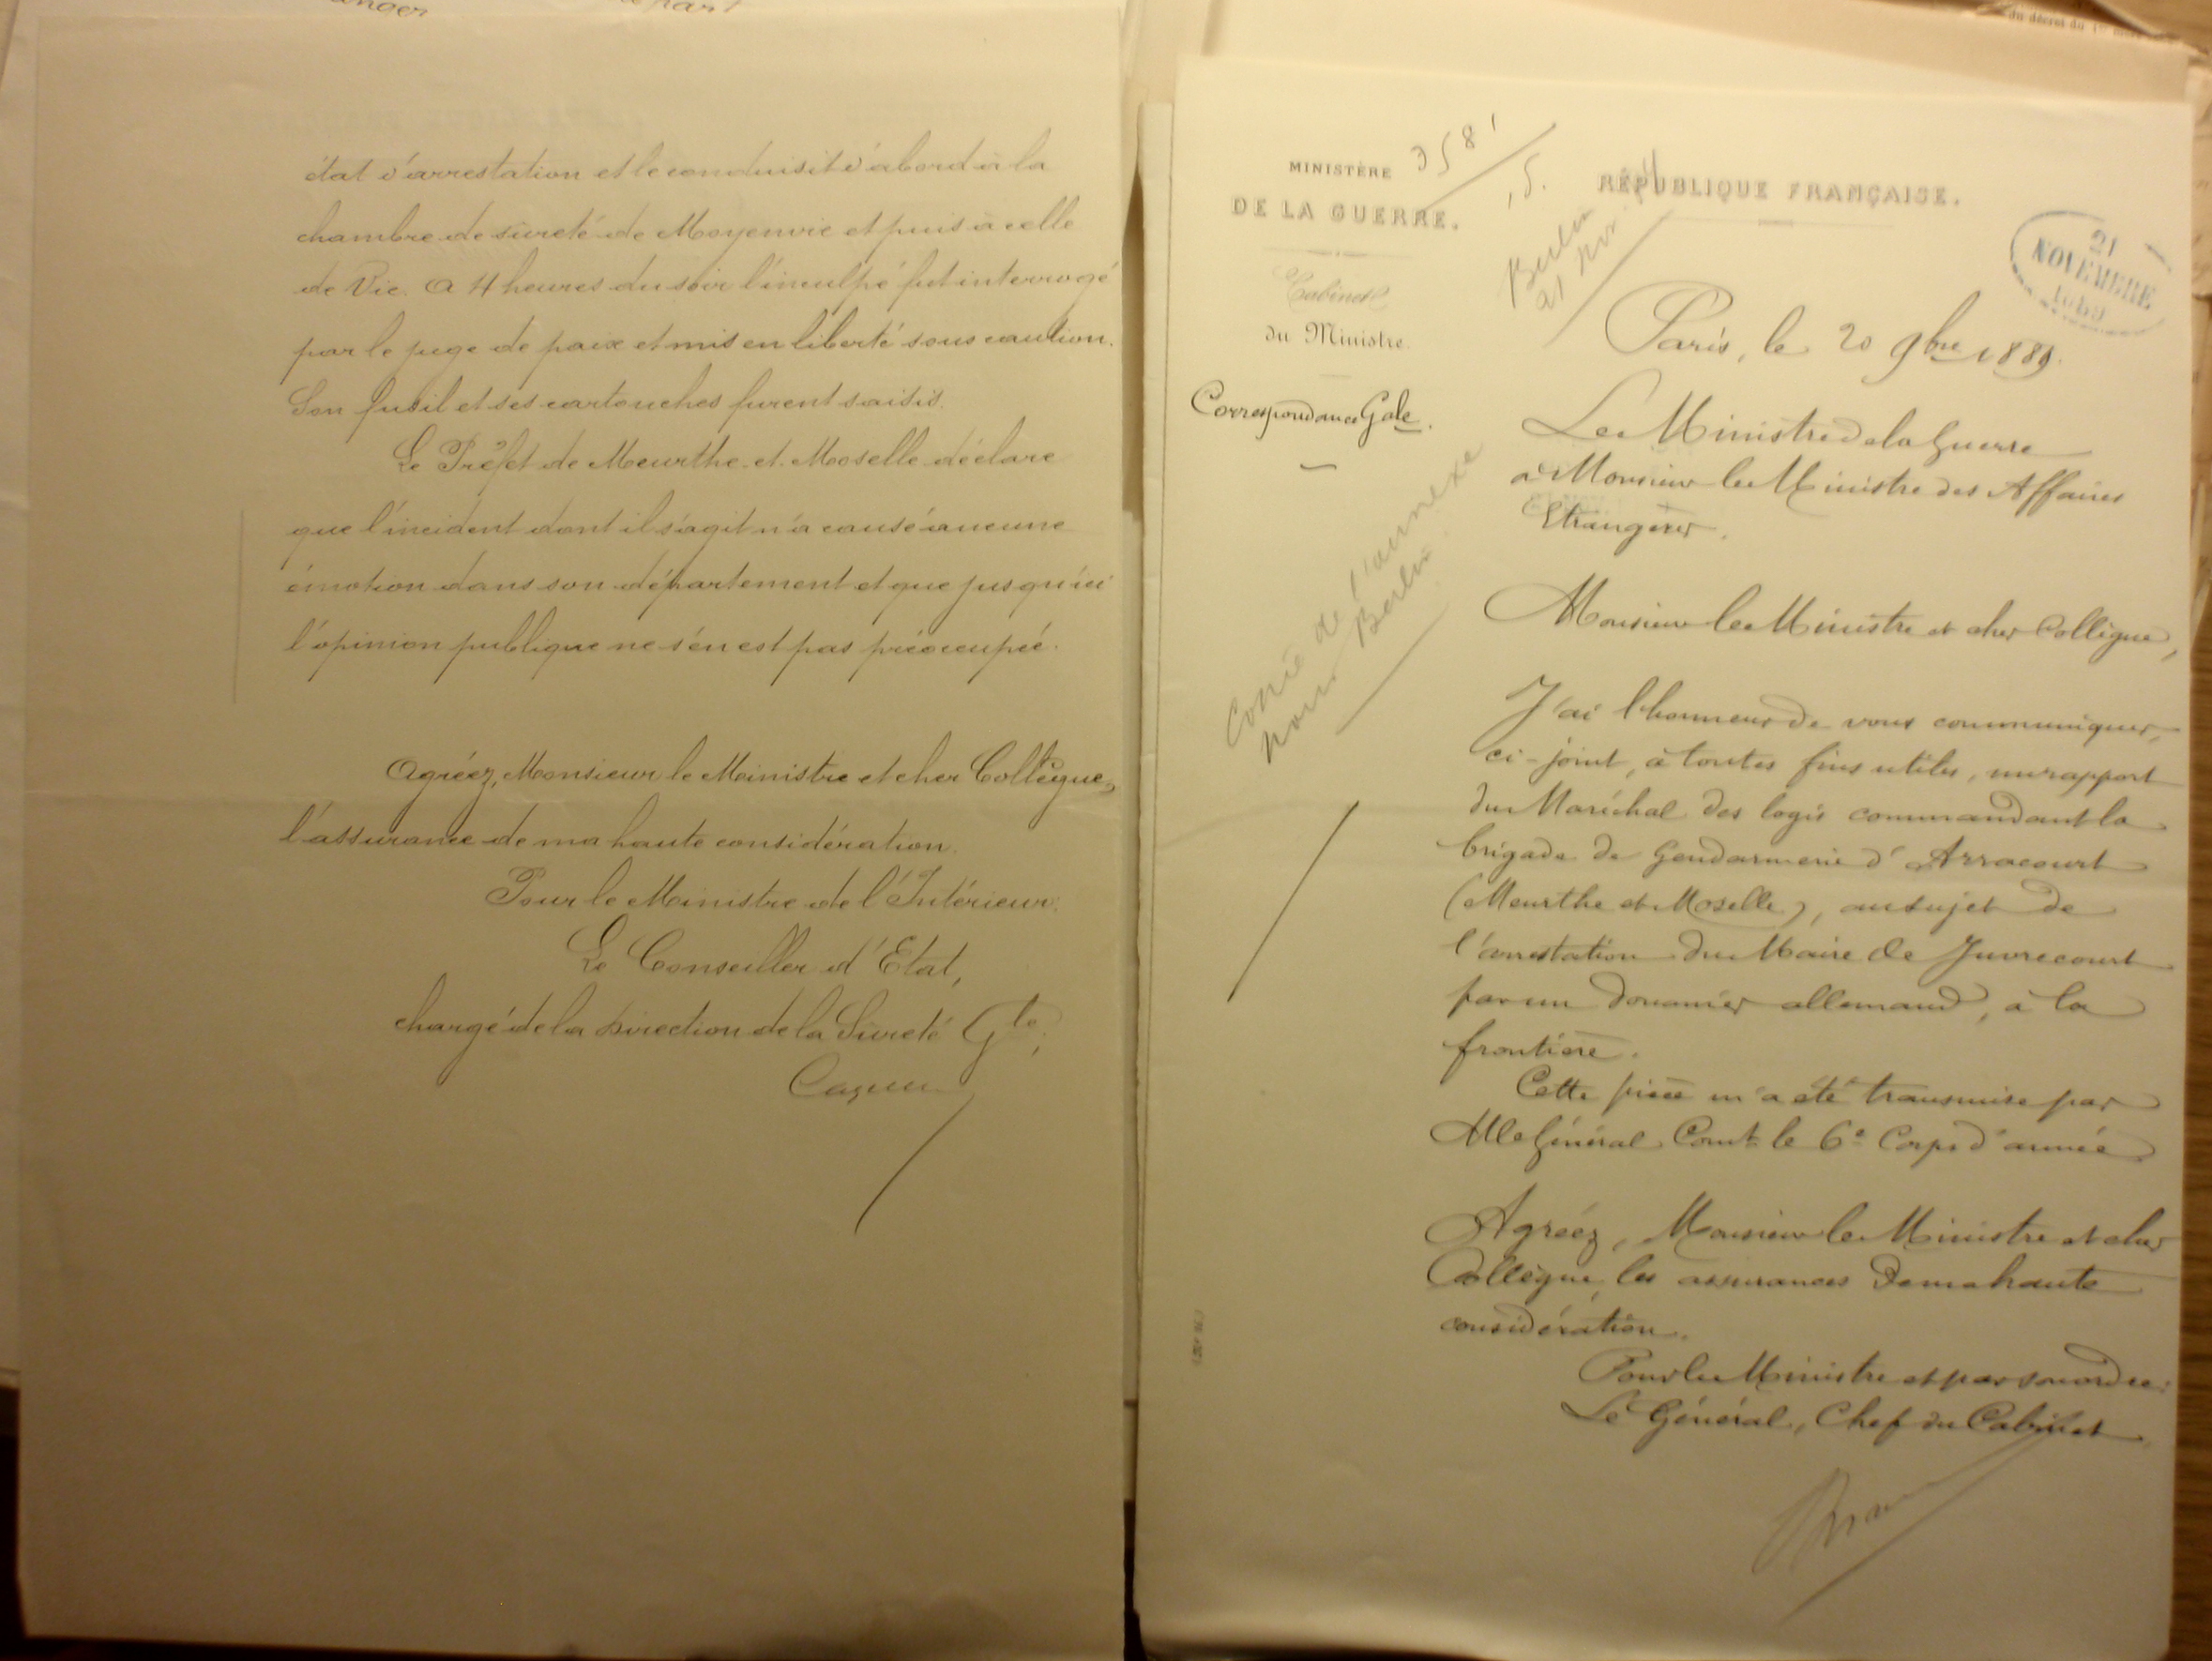 anger
état d'arrestation et le conduisit d'abord à la
chambre de sûreté de Moyenvic et puis à celle
de Vic. A 4 heures du soir l'inculpé fut interrogé
par le juge de paix et mis en liberté sous caution.
Son fusil et ses cartouches furent saisis.
Le Préfet de Meurthe-et-Moselle déclare
que l'incident dont il s'agit n'a causé aucune
émotion dans son département et que jusqu'ici
l'opinion publique ne s'en est pas préoccupée.
Agréez, Monsieur le Ministre et cher Collègue,
l'assurance de ma haute considération.
Pour le Ministre de l'Intérieur:
Le Conseiller d'Etat,
chargé de la Direction de la Sûreté Gle,
du décret du 1er mars
MINISTÈRE
DE LA GUERRE.
Cabinet
du Ministre.
Correspondance Gale.
3581
Berlin
21 Nov
RÉPUBLIQUE FRANÇAISE.
21
NOVEMBRE
1889
Paris, le 20 9bre 1889.
Le Ministre de la Guerre
à Monsieur le Ministre des Affaires
Etrangères.
Copie de l'annexe
pour Berlin.
Monsieur le Ministre et cher Collègue,
J'ai l'honneur de vous communiquer,
ci-joint, à toutes fins utiles, un rapport
du Maréchal des logis commandant la
brigade de Gendarmerie d'Arracourt
(Meurthe et Moselle), au sujet de
l'arrestation du Maire de Juvrecourt
par un douanier allemand, à la
frontière.
Cette pièce m'a été transmise par
M le Général Comt le 6e Corps d'armée.
Agréez, Monsieur le Ministre et cher
Collègue, les assurances de ma haute
considération.
Pour le Ministre et par son ordre:
Le Général, Chef du Cabinet